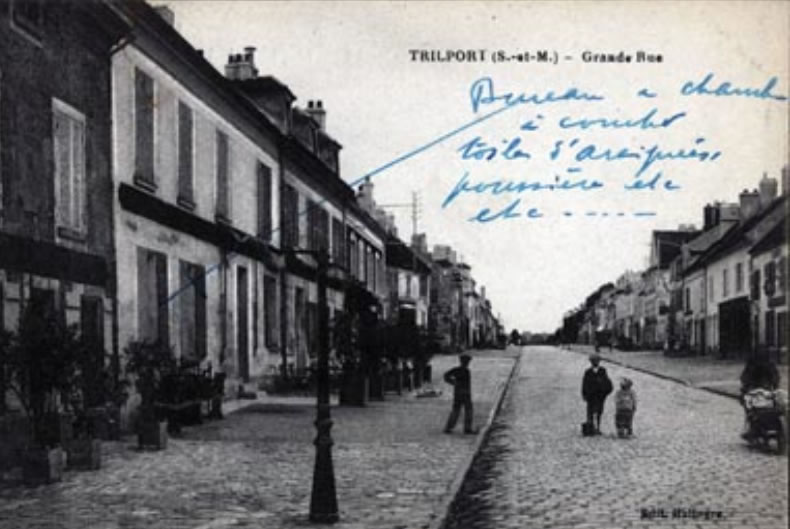 TRILPORT (S.-et-M.) – Grande Rue
Bureau a chamb
à coucher
toiles d'araignées,
poussière etc
etc -----
Edit.